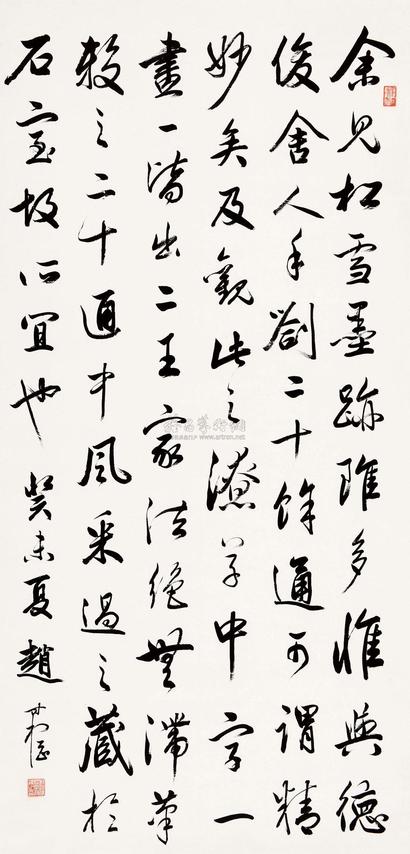 余見松雪墨跡雖多惟與德
俊舍人手劄二十餘通可謂精
妙矣及觀此之潦草中字一
畫一皆出二王家法絕無滯筆
較之二十通中風采過之藏於
石室故所宜也 癸未夏趙
www.artron.net